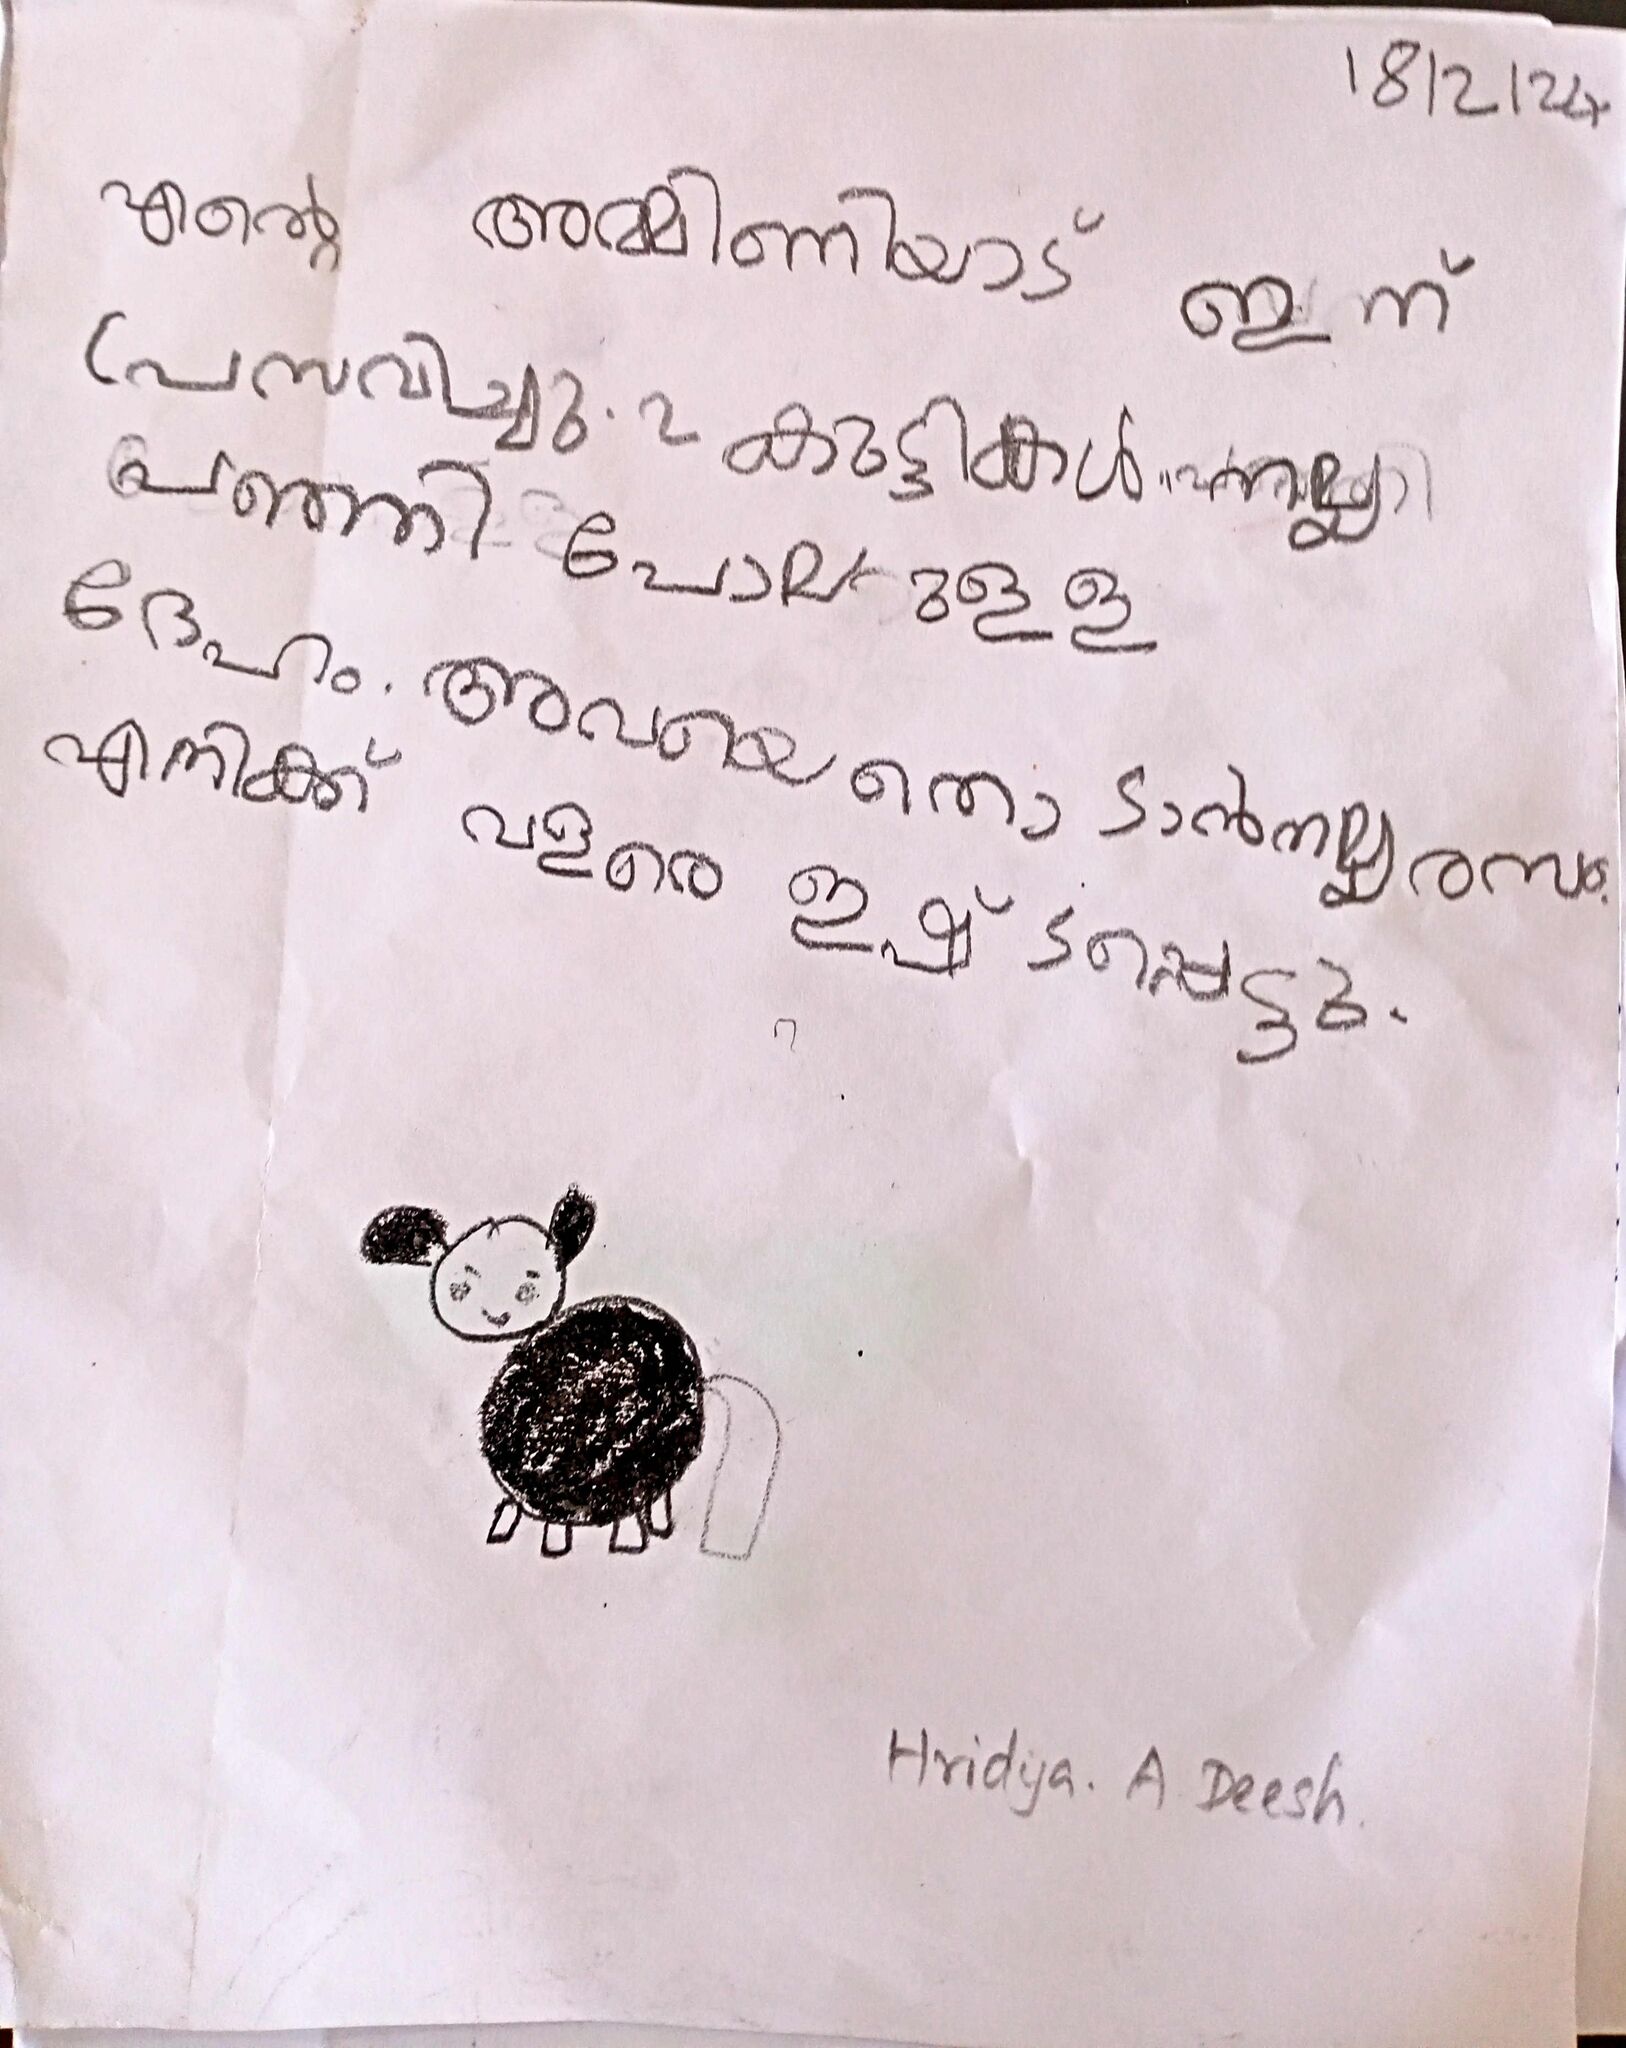 18/2/24
എന്റെ അമ്മിണിയാട് ഇന്ന്
പ്രസവിച്ചു. 2 കുട്ടികൾ. നല്ല
പഞ്ഞി പോലുള്ള
ദേഹം. അവയെ തൊടാൻ നല്ല രസം.
എനിക്ക് വളരെ ഇഷ്ടപ്പെട്ടു.
Hridya. A Deesh.